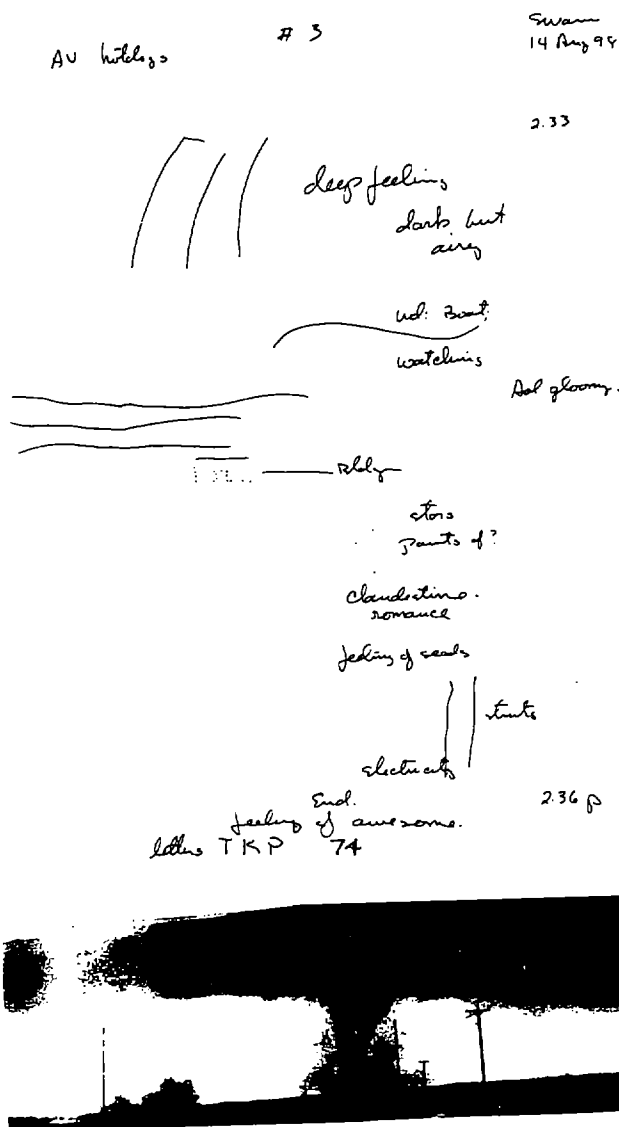 # 3
14 Aug 98
AV hotdogs
2.33
deep feeling
dark but
airey
Boat;
watching
gloomy.
Bldg
stors
Paints of?
Clandestine.
romance
feeling of seeds
struts
electricity
End.
2.36 p
feeling of awesome.
letters TKP 74